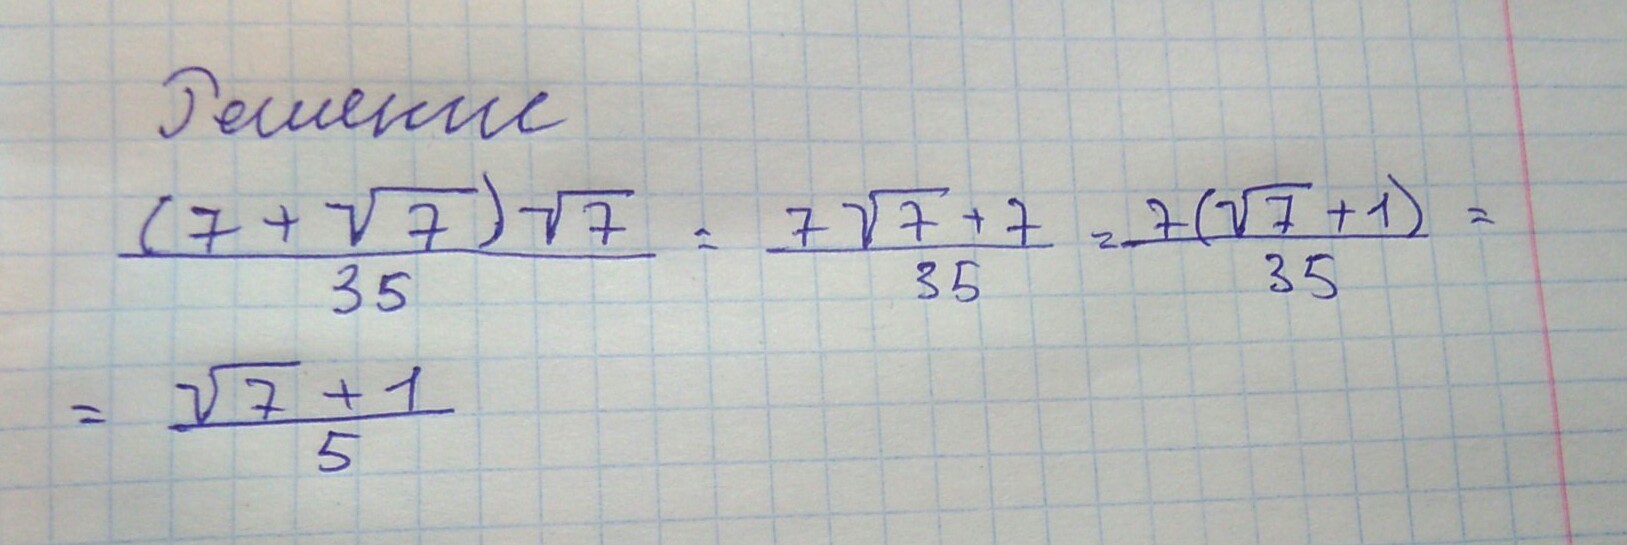 Решение
(7 + √7)√7 / 35 = 7√7 + 7 / 35 = 7(√7 + 1) / 35 =
= √7 + 1 / 5